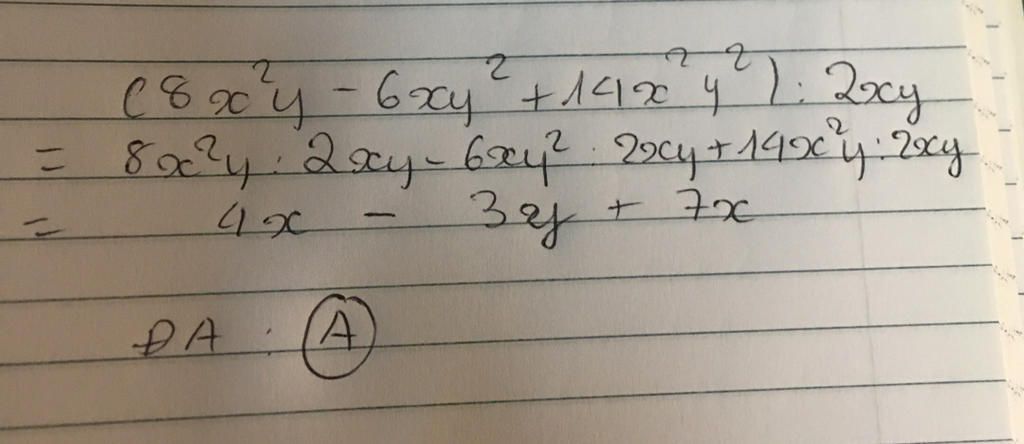 (8x²y - 6xy² + 14x²y²) : 2xy
= 8x²y : 2xy - 6xy² : 2xy + 14x²y : 2xy
= 4x - 3y + 7x
ĐA : A